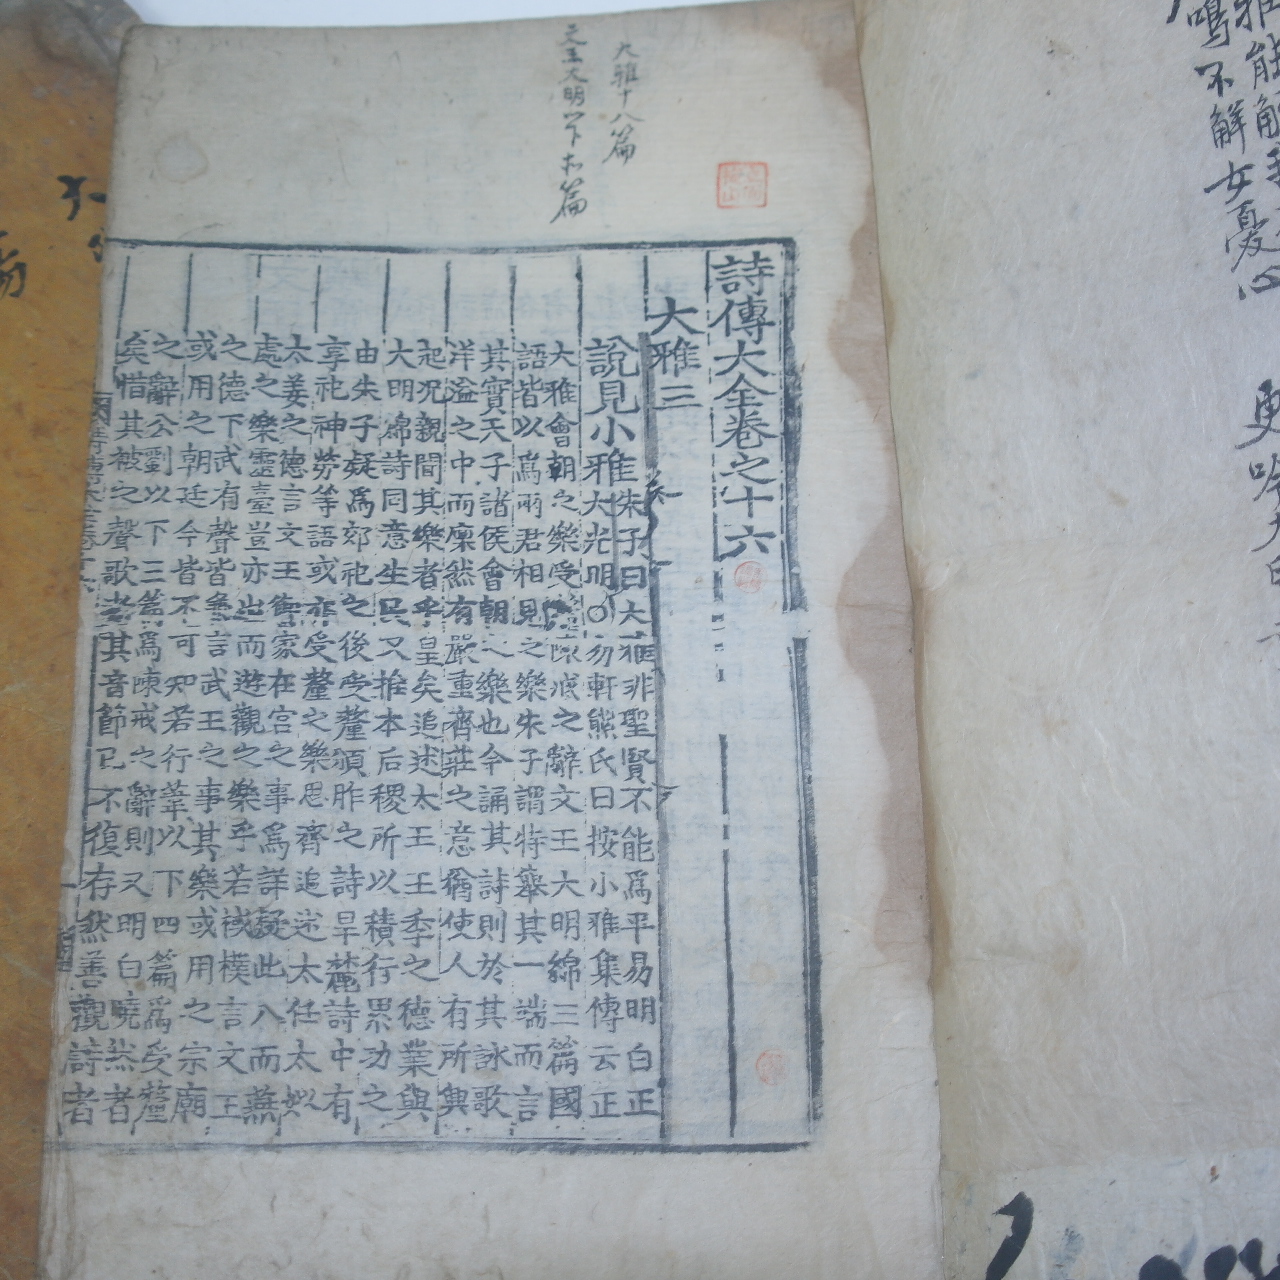 鳴不解女憂心 更吟
大雅十八篇
文王大明以下 篇
詩傳大全卷之十六
大雅三
說見小雅
朱子曰大雅非聖賢不能爲平易明白正
大光明○勿軒熊氏曰按小雅集傳云正
大雅會朝之樂受 陳戒之辭文王大明綿三篇國
語皆以爲兩君相見之樂朱子謂特舉其一端而言
其實天子諸侯會朝之樂也今誦其詩則於其詠歌
洋溢之中而凜然有嚴重齊莊之意猶使人有所興
起况親聞其樂者乎皇矣追述太王王季之德業與
大明綿詩同意生民又推本后稷所以積行累功之
由朱子疑爲郊祀之後受釐頒胙之詩旱麓詩中有
享祀神勞等語或亦受釐之樂思齊追述太任太姒
太姜之德言文王御家在宮之事爲詳疑此八而燕
處之樂靈臺豈亦出而遊觀之樂乎若棫樸言文王
之德下武有聲皆兼言武王之事其樂或用之宗廟
或用之朝廷今皆不可知若行葦以下四篇爲受釐
之辭公劉以下三篇爲陳戒之辭則又明白曉然者
矣惜其被之聲歌者其音節已不復存然善觀詩者